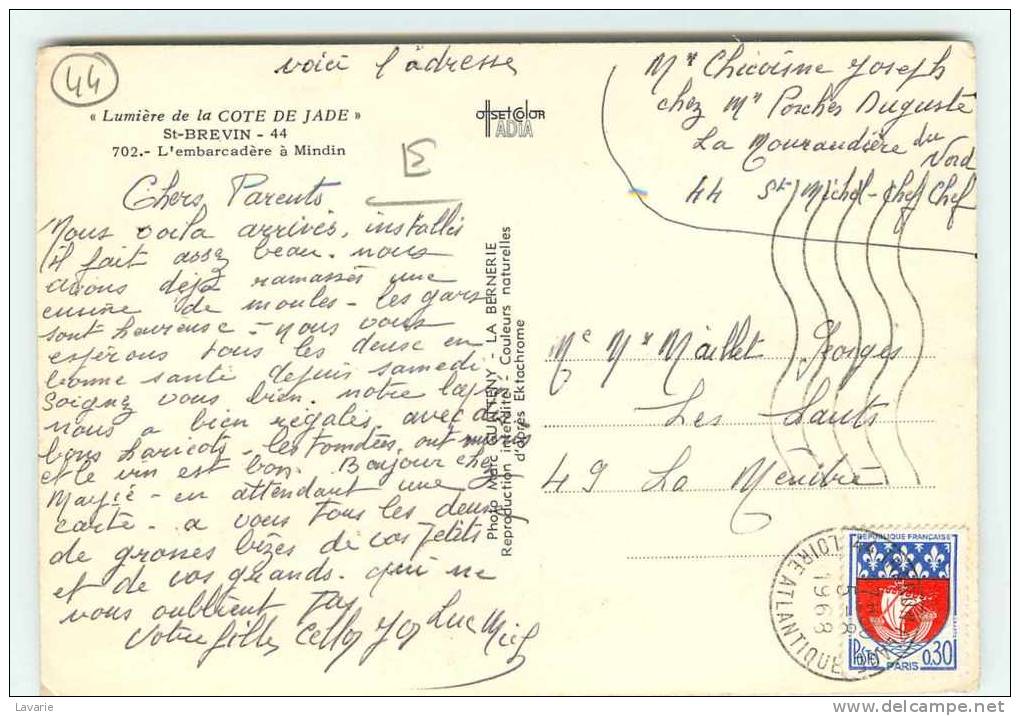 44
voici l'adresse
« Lumière de la COTE DE JADE »
St-BREVIN - 44
702.- L'embarcadère à Mindin
offsetColor
ADIA
E
Mr Chicoisne Joseph
chez Mr Porcher Auguste
La Mourandière du
Nord
44 St Michel-Chef Chef
Chers Parents
Nous voila arrivés, installés
Il fait assez beau. nous
avons déjà ramassés une
cuisine de moules - les gars
sont heureuse - nous vous
espérons tous les deuse en
bonne santé depuis samedi
Soignez vous bien. notre lapin
nous a bien régalés avec de
bons haricots - les tomates ont muris
et le vin est bon. Bonjour chez
en attendant une
carte - a vous tous les deuse
de grosses bizes de vos petits
et de vos grands. qui ne
vous oublient pas
Votre fille Jo Luc Mich
Photo Marc QUINTENY - LA BERNERIE
Reproduction interdite - Couleurs naturelles
d'après Ektachrome
Me Mr Maillet Georges
Les Hauts
49 La Ménitré
REPUBLIQUE FRANÇAISE
POSTES
PARIS
0,30
LOIRE ATLANTIQUE
1968
Lavarie
www.delcampe.net